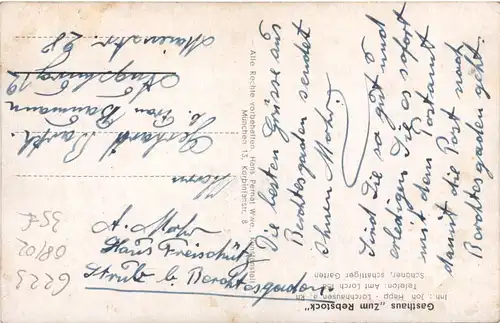 Die besten Grüsse aus
Berchtesgaden sendet
Ihnen Mohr.
Sind Sie so gut und
erledigen Sie es sofort
mit dem Postamt
damit die Post nach
Berchtesgaden geht.
A. Mohr
Haus Freischütz
Strub b. Berchtesgaden
Herrn
Gerhard
b. Frau Baumann
Augsburg 12
Gasthaus „Zum Rebstock“
Inh.: Jon Hepp - Lorchhausen a. Rh.
Telefon Amt Lorch
Schöner, schattiger Garten
Alle Rechte vorbehalten, Hans Pernat Wwe.,
München 13,
6223
08/02